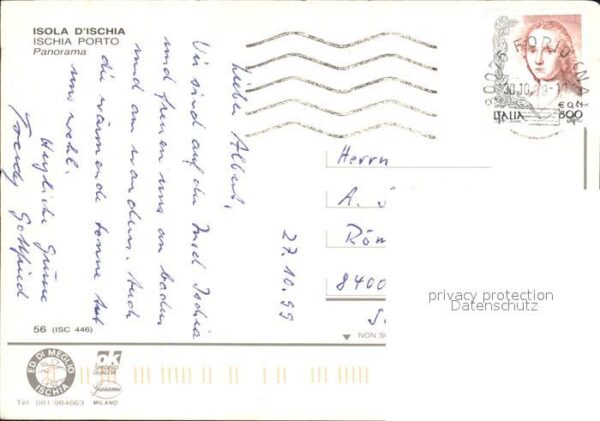 ISOLA D'ISCHIA
ISCHIA PORTO
Panorama
27.10.99
Lieber Albert,
Wir sind auf der Insel Ischia
und freuen uns am baden
und am wandern. Auch
die wärmende Sonne tut
uns wohl.
Herzliche Grüsse
Gottfried
80075 FORIO
30.10.
ITALIA
€ 0,41
800
Herrn
A.
Röm
8400
privacy protection
Datenschutz
56 (ISC 446)
NON S
ED. DI MEGLIO
ISCHIA
Tel. 081-984663
ok
SPECIFICI
QUALITÀ
Garami
MILANO